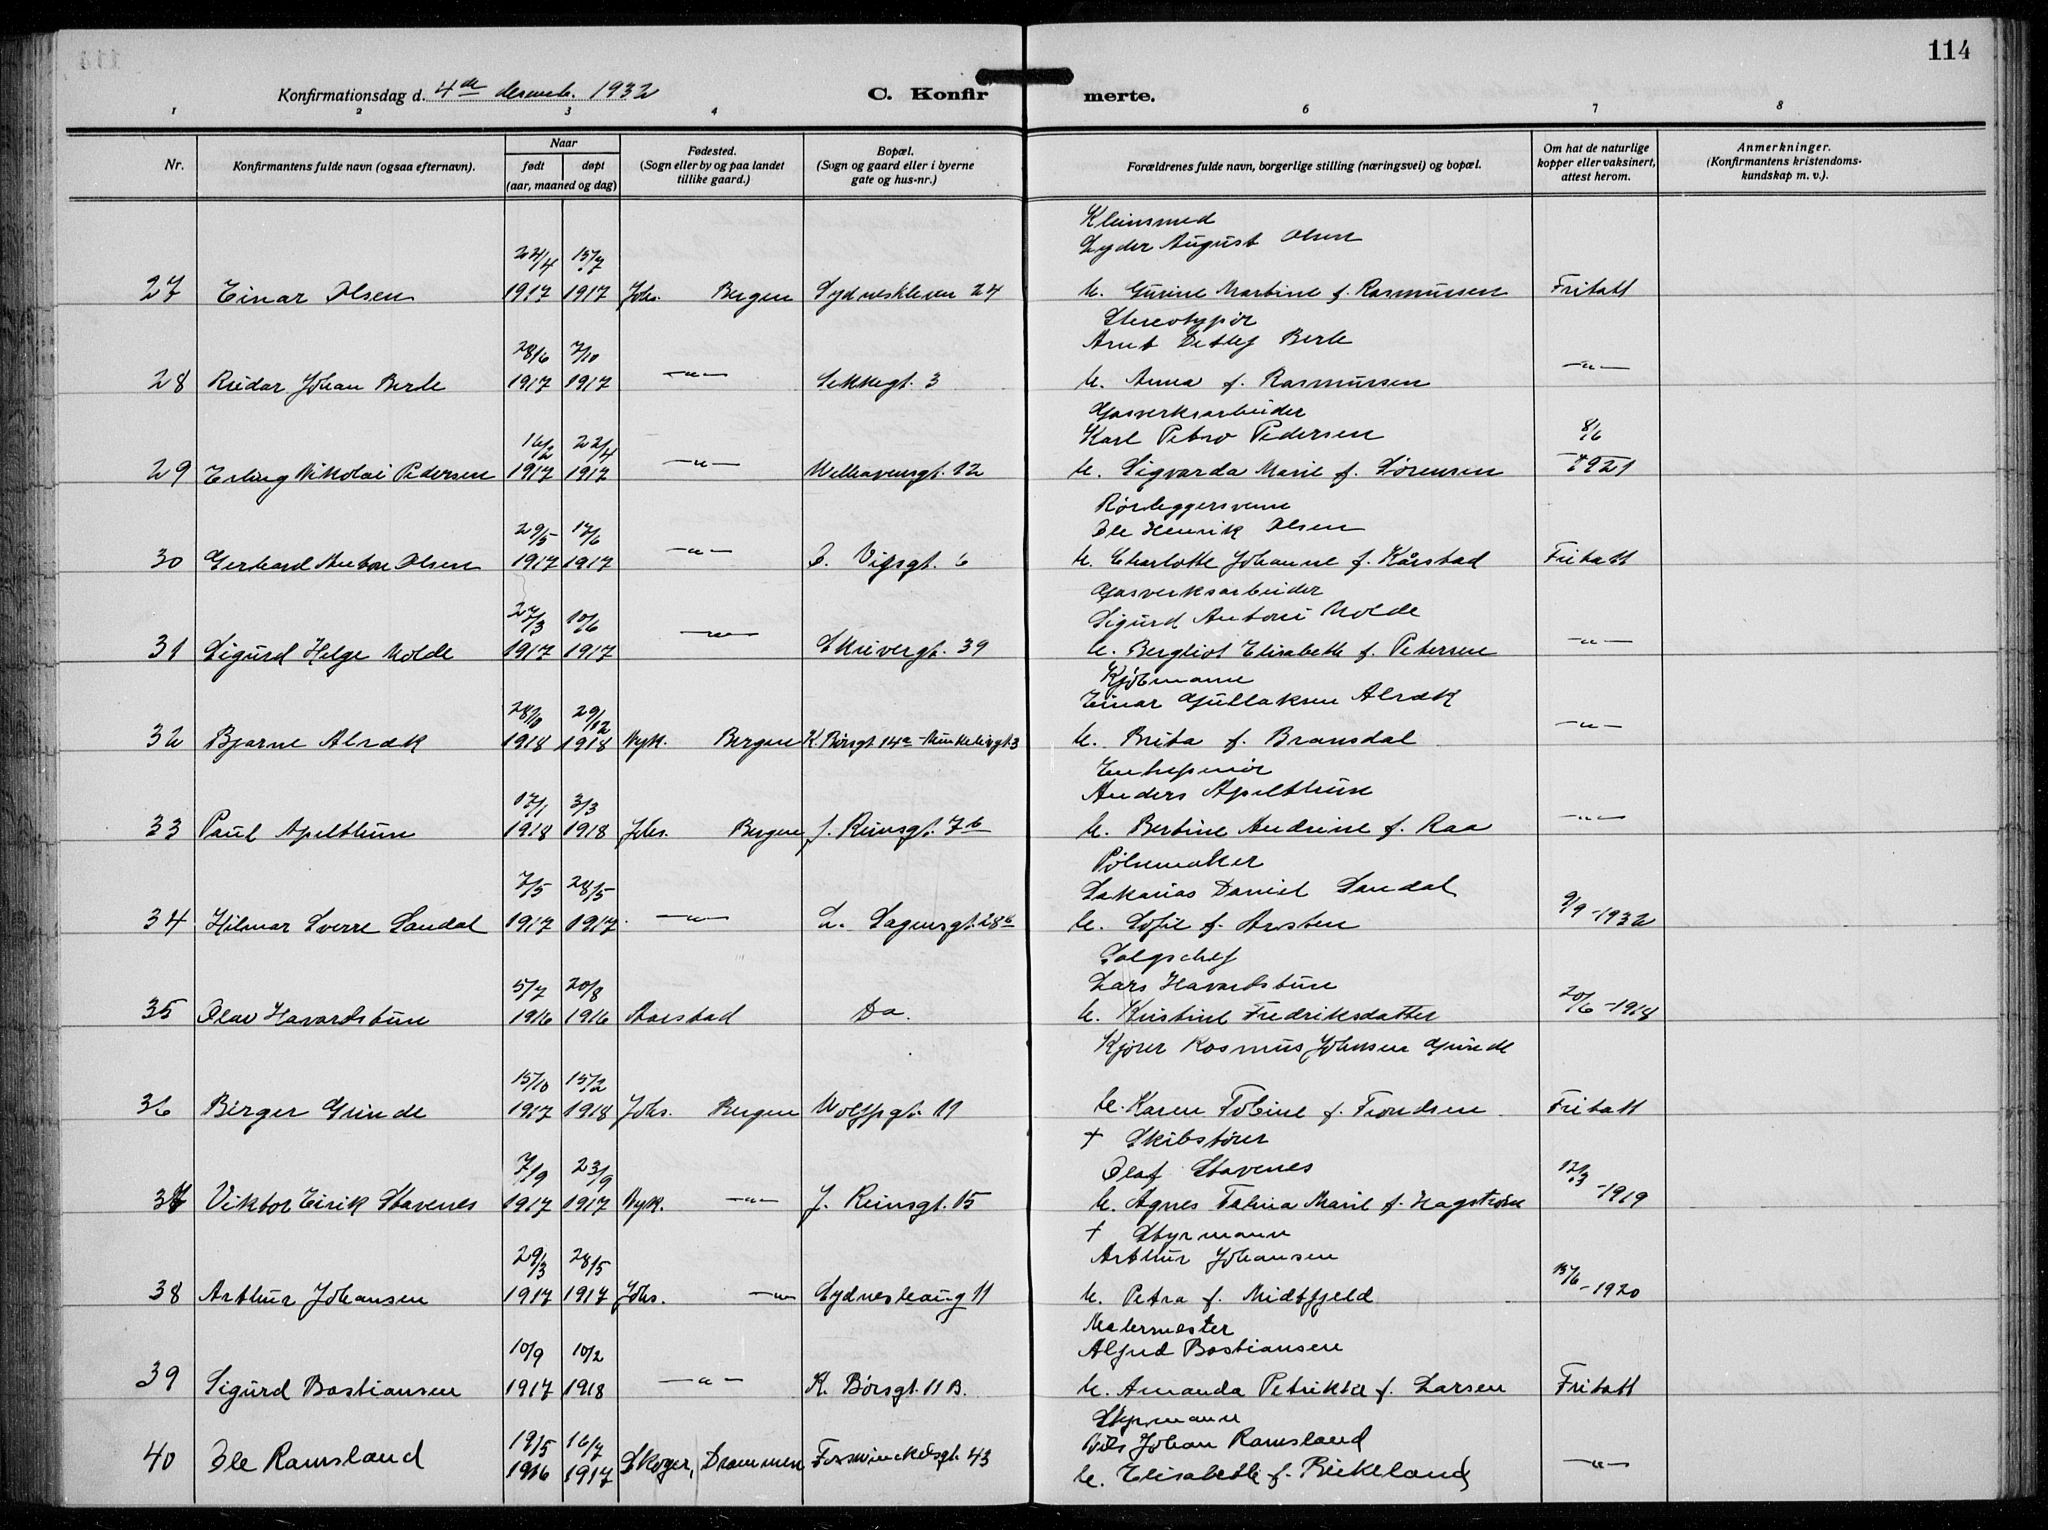 114
Konfirmationsdag d. 4de desemb. 1932
C. Konfirmerte.
1 2 3 4 6 7 8
Nr.
Konfirmantens fulde navn (ogsaa efternavn).
Naar
født døpt
(aar, maaned og dag)
Fødested.
(Sogn eller by og paa landet
tillike gaard.)
Bopæl.
(Sogn og gaard eller i byerne
gate og hus-nr.)
Forældrenes fulde navn, borgerlige stilling (næringsvei) og bopæl.
Om hat de naturlige
kopper eller vaksinert,
attest herom.
Anmerkninger.
(Konfirmantens kristendoms-
kundskap m. v.).
Kleinsmed
Lyder August Olsen
24/4 15/7
27 Einar Olsen 1917 1917 Johs. Bergen Sydneskleven 24 h. Gurine Martine f. Rasmussen Fritatt
Stereotypør
Arnt Detlef Berle
28/6 7/10
28 Reidar Johan Berle 1917 1917 -"- Sekkegt. 3 h. Anna f. Rasmussen -"-
Gasverksarbeider
Karl Petro Pedersen
16/2 22/4 8/6
29 Erling Nikolai Pedersen 1917 1917 -"- Welhavensgt. 12 h. Sigvarda Marie f. Sørensen 1921
Rørleggersvenn
Ole Henrik Olsen
29/5 17/6
30 Gerhard Anton Olsen 1917 1917 -"- O. Vigsgt. 6 h. Charlotte Johanne f. Kårstad Fritatt
Gasverksarbeider
Sigurd Antoni Molde
27/3 10/6
31 Sigurd Helge Molde 1917 1917 -"- Skivergt. 39 h. Bergliot Elisabeth f. Petersen -"-
Kjøbmann
Einar Gullaksen Alræk
28/10 29/12
32 Bjarne Alræk 1918 1918 Nyk. Bergen K. Børsgt. 14a - Munkebivgt. 3 h. Brita f. Bransdal -"-
Entreprenør
Anders Apelthun
17/1 3/3
33 Paul Apelthun 1918 1918 Johs. Bergen J. Reinsgt. 7b h. Bertine Andrine f. Raa -"-
Pølsemaker
Sakarias Daniel Sandal
7/5 28/5
34 Hilmar Sverre Sandal 1917 1917 -"- L. Sagensgt. 28b h. Sofie f. Arsten 9/9-1932
Salgschef
Lars Havardstun
5/7 20/8
35 Olav Havardstun 1916 1916 Do. h. Kristine Fredriksdatter 20/6-1918
Kjører Rasmus Johnsen Grinde
15/10 15/2
36 Birger Grinde 1917 1918 Johs. Bergen Wolffsgt. 11 h. Karen Tobine f. Trondsen Fritatt
† Skibsfører
Olaf Stavenes
7/9 23/9
37 Viktor Eirik Stavenes 1917 1917 Nyk. -"- J. Reinsgt. 15 h. Agnes Talina Marie f. Hagstrøm 12/3-1919
† Styrmann
Arthur Johansen
29/3 28/5
38 Arthur Johansen 1917 1917 Johs. -"- Sydneshaug 11 h. Petra f. Midtfjeld 15/6-1920
Malermester
Alfred Bastiansen
10/9 10/2
39 Sigurd Bastiansen 1917 1918 -"- K. Børsgt. 11 B. h. Amanda Petrikka f. Larsen Fritatt
Styrmann
Nils Johan Ramsland
19/5 16/7
40 Ole Ramsland 1916 1917 Skoger, Drammen Formanekilsgt. 43 h. Elisabeth f. Birkeland -"-